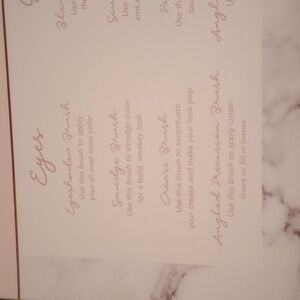 Eyes
Eyeshadow Brush
Use this brush to apply
your all over base color
Smudge Brush
Use this brush to smudge color
for a bold, smokey look
Crease Brush
Use this brush to accentuate
your crease and make your look pop
Angled Precision Brush
Use this brush to apply cream
liners or fill in brows
Use
the
Use
and s
Use th
fou
Angle
U